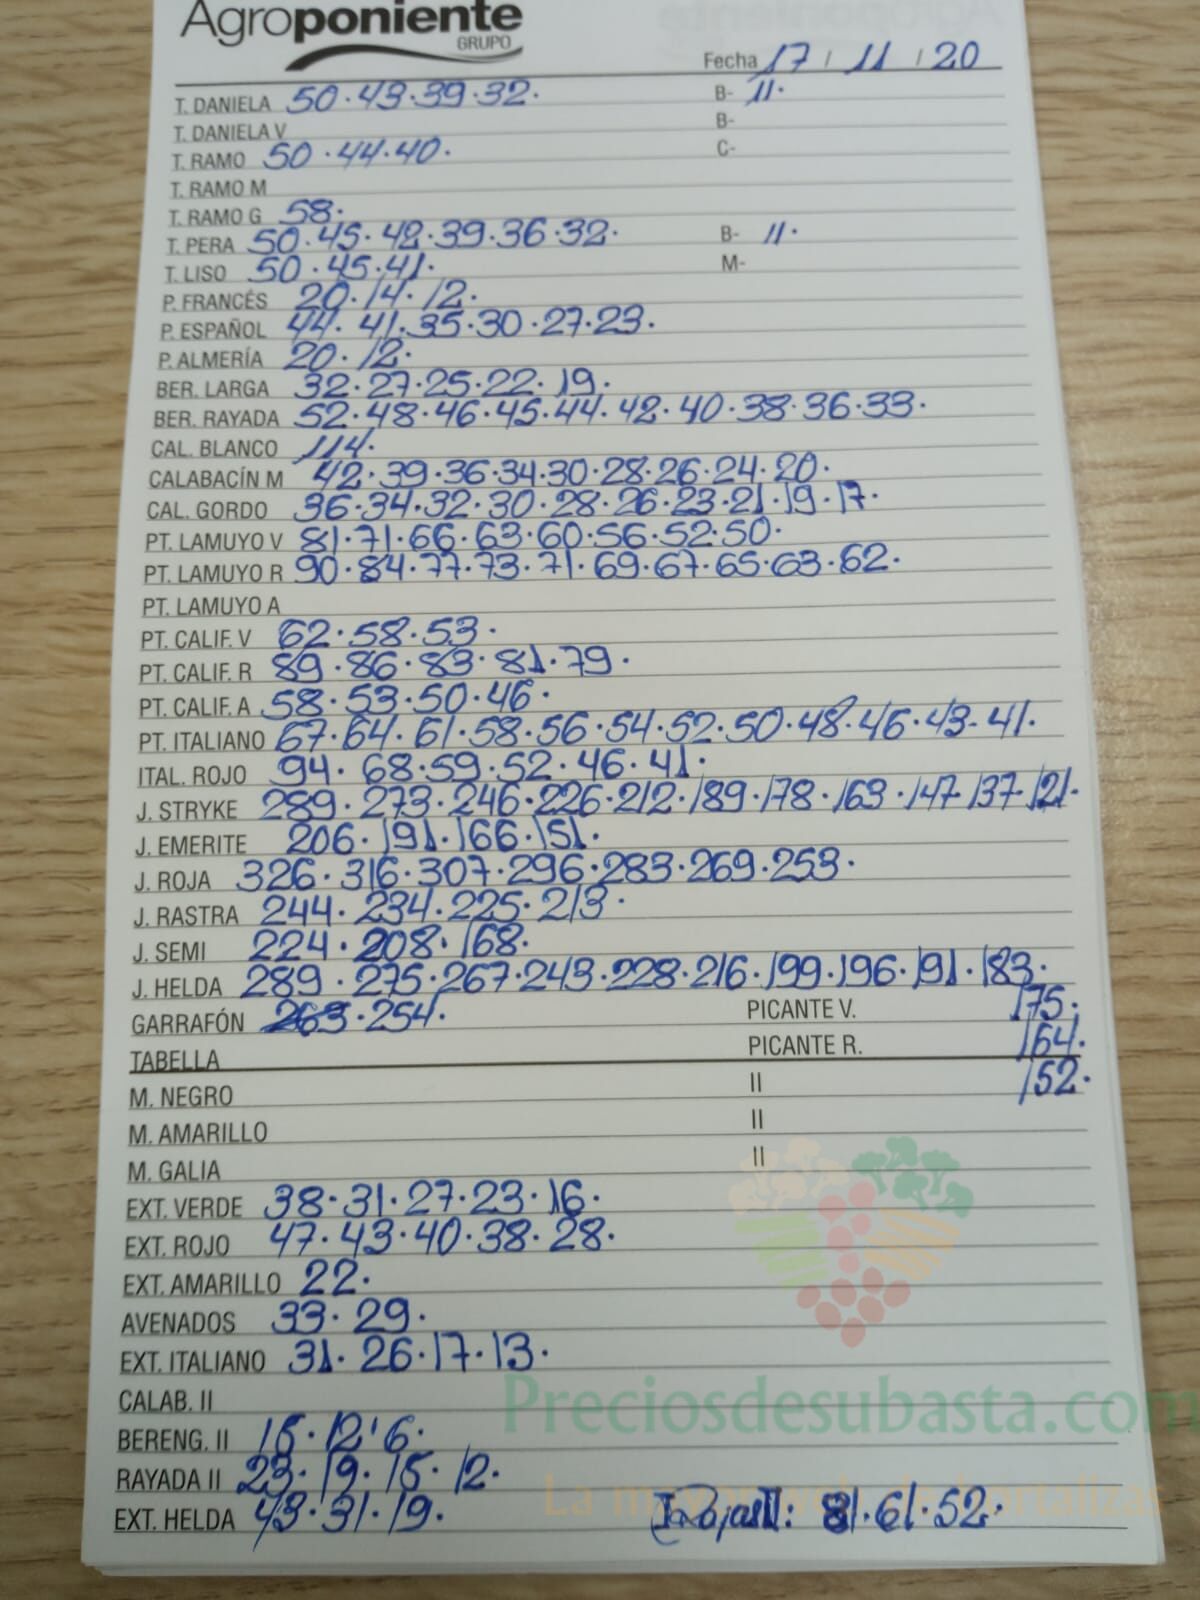 Agroponiente
GRUPO
Fecha 17 / 11 / 20
T. DANIELA 50·43·39·32· B- 11·
T. DANIELA V B-
T. RAMO 50·44·40· C-
T. RAMO M
T. RAMO G 58·
T. PERA 50·45·42·39·36·32· B- 11·
T. LISO 50·45·41· M-
P. FRANCÉS 20·14·12·
P. ESPAÑOL 44·41·35·30·27·23·
P. ALMERÍA 20·12·
BER. LARGA 32·27·25·22·19·
BER. RAYADA 52·48·46·45·44·42·40·38·36·33·
CAL. BLANCO 114·
CALABACÍN M 42·39·36·34·30·28·26·24·20·
CAL. GORDO 36·34·32·30·28·26·23·21·19·17·
PT. LAMUYO V 81·71·66·63·60·56·52·50·
PT. LAMUYO R 90·84·77·73·71·69·67·65·63·62·
PT. LAMUYO A
PT. CALIF. V 62·58·53·
PT. CALIF. R 89·86·83·81·79·
PT. CALIF. A 58·53·50·46·
PT. ITALIANO 67·64·61·58·56·54·52·50·48·46·43-41·
ITAL. ROJO 94·68·59·52·46·41·
J. STRYKE 289·273·246·226·212·189·178·163·147·137·121·
J. EMERITE 206·191·166·151·
J. ROJA 326·316·307·296·283·269·253·
J. RASTRA 244·234·225·213·
J. SEMI 224·208·168·
J. HELDA 289·275·267·243·228·216·199·196·191·183·
GARRAFÓN 263·254· PICANTE V. 175·
TABELLA PICANTE R. 164·
M. NEGRO II 152·
M. AMARILLO II
M. GALIA II
EXT. VERDE 38·31·27·23·16·
EXT. ROJO 47·43·40·38·28·
EXT. AMARILLO 22·
AVENADOS 33·29·
EXT. ITALIANO 31·26·17·13·
CALAB. II
Preciosdesubasta.com
BERENG. II 15·12'6·
RAYADA II 23·19·15·12·
La
EXT. HELDA 43·31·19· 81·61·52·